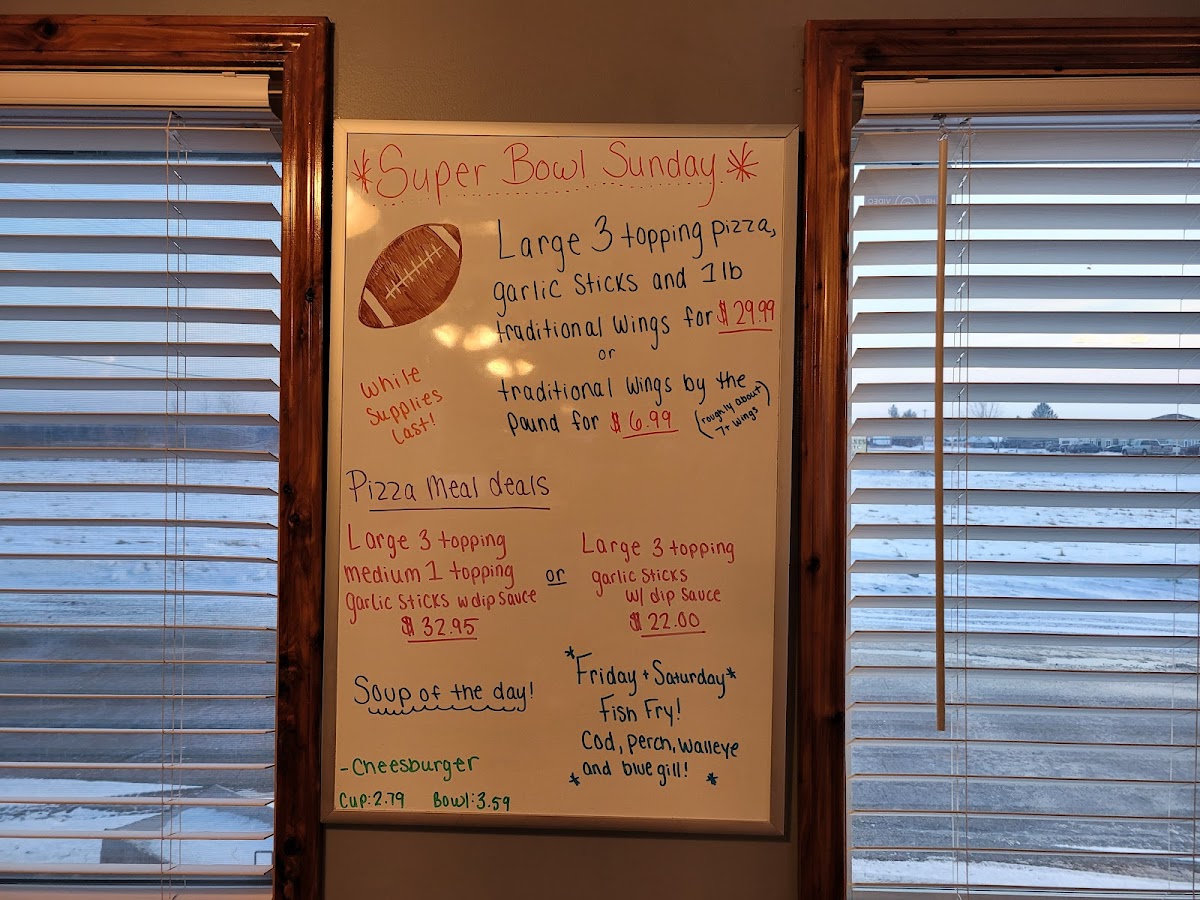 *Super Bowl Sunday*
Large 3 topping pizza,
garlic sticks and 1lb
traditional wings for $29.99
or
traditional wings by the
pound for $6.99 (roughly about
7+ wings)
while
supplies
last!
Pizza Meal deals
Large 3 topping
medium 1 topping
garlic sticks w dip sauce
$32.95
or
Large 3 topping
garlic sticks
w/ dip sauce
$22.00
Soup of the day!
-Cheesburger
Cup:2.79 Bowl:3.59
*Friday + Saturday*
Fish Fry!
Cod, perch, walleye
*and blue gill! *